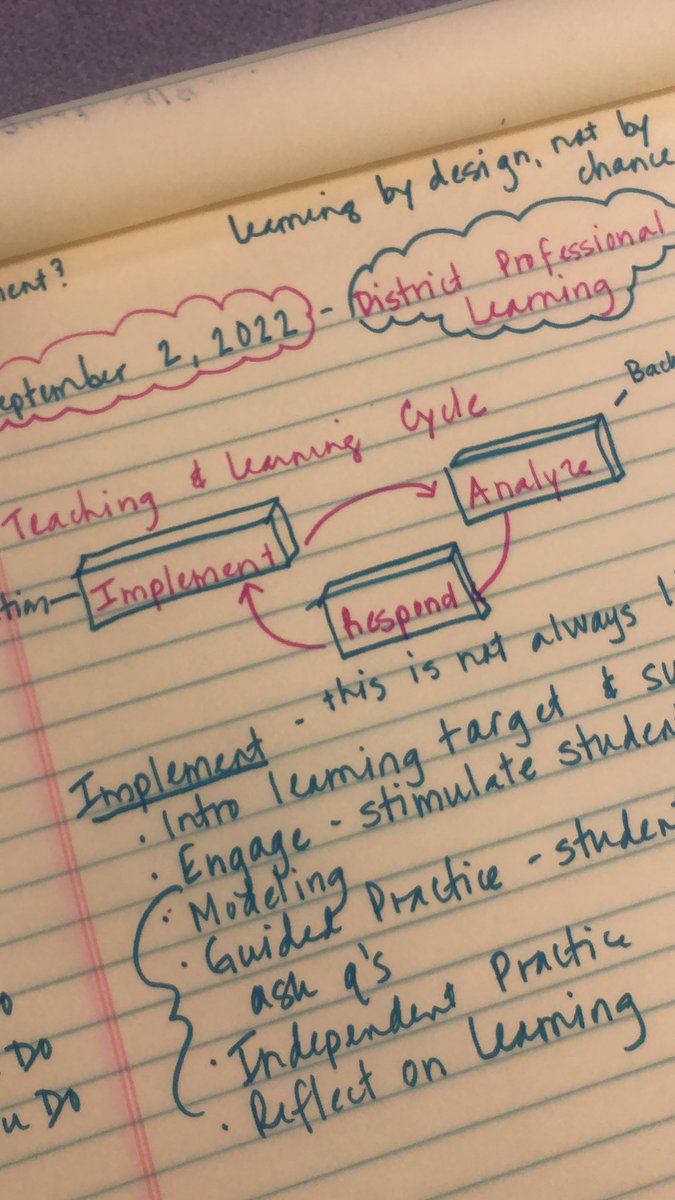 learning by design, not by
chance
ment?
September 2, 2022 - District Professional
Learning
Teaching & Learning Cycle
Back
Analyze
Implement
Respond
Implement - this is not always li
· Intro learning target & su
· Engage - stimulate student
· Modeling
· Guided Practice - student
ask q's
· Independent Practice
· Reflect on learning
Do
u Do